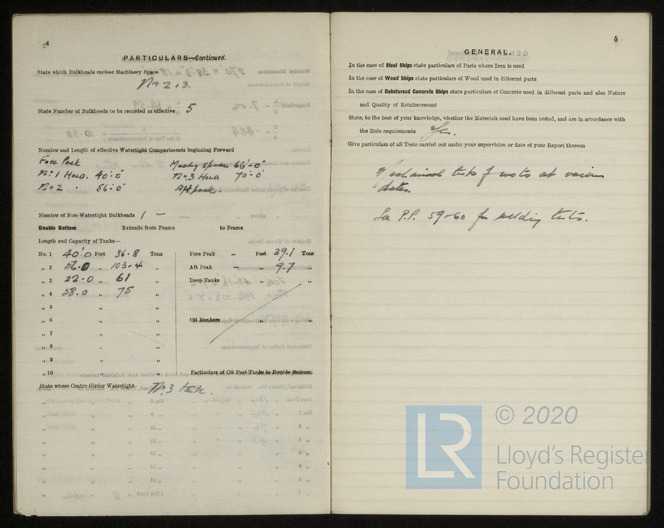 4
PARTICULARS—Continued.
State which Bulkheads enclose Machinery Space
No 2 & 3.
State Number of Bulkheads to be recorded as effective 5
Number and Length of effective Watertight Compartments beginning Forward
Fore Peak Machy space 66'-0"
No 1 Hold. 40'-0" No 3 Hold 70'-0"
No 2 " 56'-0" Aft peak.
Number of Non-Watertight Bulkheads 1 -
Double Bottom Extends from Frame to Frame
Length and Capacity of Tanks—
No. 1 40.0 Feet 36.8 Tons Fore Peak - Feet 39.1 Tons
" 2 56.0 " 103.4 " Aft Peak - " 9.7 "
" 3 22.0 " 61 " Deep Tanks " "
" 4 58.0 " 75 "
" 5 " "
" 6 " " Oil Bunkers " "
" 7 " "
" 8 " "
" 9 " "
" 10 " " Particulars of Oil Fuel Tanks in Double Bottom
State where Centre Girder Watertight No. 3 tank.
5
GENERAL.
In the case of Steel Ships state particulars of Parts where Iron is used
In the case of Wood Ships state particulars of Wood used in different parts
In the case of Reinforced Concrete Ships state particulars of Concrete used in different parts and also Nature
and Quality of Reinforcement
State, to the best of your knowledge, whether the Materials used have been tested, and are in accordance with
the Rule requirements Yes.
Give particulars of all Tests carried out under your supervision or date of your Report thereon
Mechanical tests of mats at various
dates.
See P.P. 59-60 for welding tests.
© 2020
LR
Lloyd's Register
Foundation